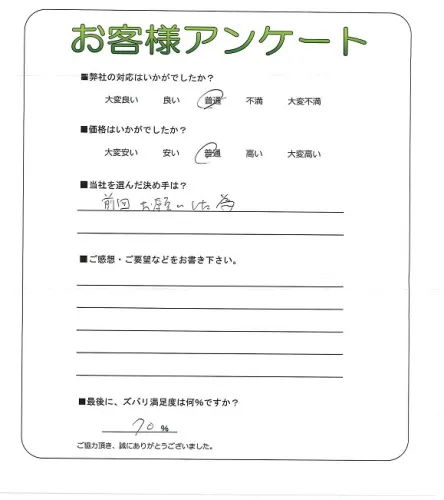 お客様アンケート
■弊社の対応はいかがでしたか？
大変良い 良い 普通 不満 大変不満
■価格はいかがでしたか？
大変安い 安い 普通 高い 大変高い
■当社を選んだ決め手は？
前回お願いした為
■ご感想・ご要望などをお書き下さい。
■最後に、ズバリ満足度は何％ですか？
70 ％
ご協力頂き、誠にありがとうございました。